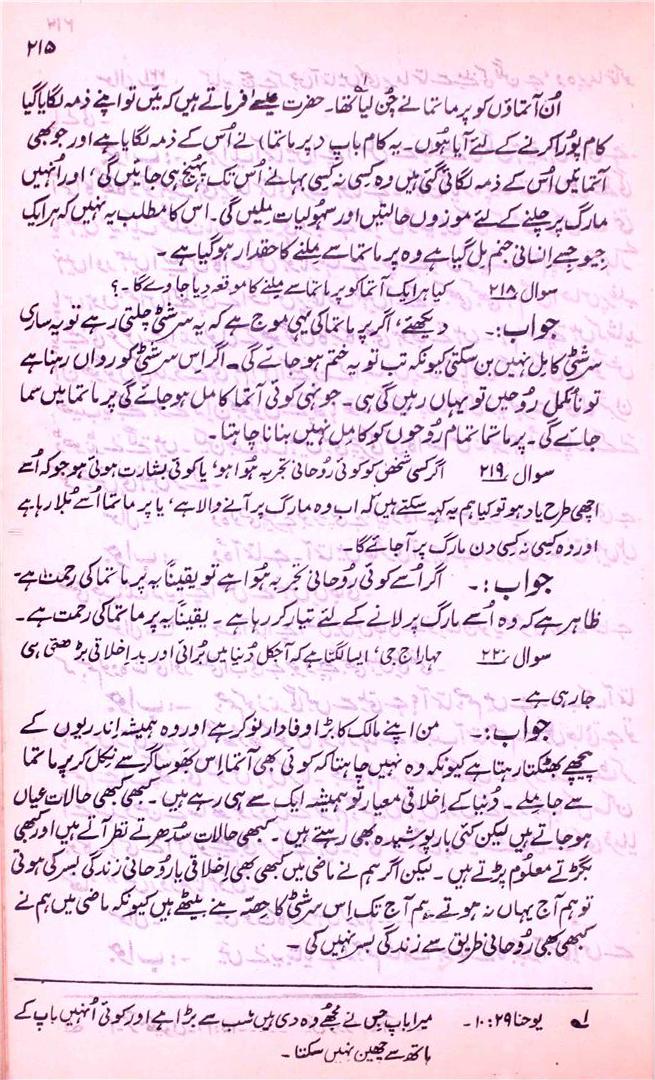 ۲۱۵
اُن آتماؤں کو پرماتما نے چُن لیا تھا۔ حضرت عیسےٰ فرماتے ہیں کہ میں تو اپنے ذمہ لگایا گیا
کام پوُرا کرنے کے لئے آیا ہُوں۔ یہ کام باپ (پرماتما) نے اُس کے ذمہ لگایا ہے اور جو بھی
آتمائیں اُس کے ذمہ لگائی گئی ہیں وہ کسی نہ کسی بہانے اُس تک پہنچ ہی جائیں گی، اور اُنہیں
مارگ پر چلنے کے لئے موزوں حالتیں اور سہُولیات ملیں گی۔ اس کا مطلب یہ نہیں کہ ہر ایک
جیو جسے اِنسانی جنم مِل گیا ہے وہ پرماتما سے مِلنے کا حقدار ہو گیا ہے۔
سوال ۲۱۸ کیا ہر ایک آتما کو پرماتما سے مِلنے کا موقعہ دیا جاوے گا۔؟
جواب:۔ دیکھئے، اگر پرماتما کی یہی موج ہے کہ یہ سرشٹی چلتی رہے تو یہ ساری
سرشٹی کامِل نہیں بن سکتی کیونکہ تب تو یہ ختم ہو جائے گی۔ اگر اس سرشٹی کو رواں رہنا ہے
تو نامُکمل رُوحیں تو یہاں رہیں گی ہی۔ جو نہی کوئی آتما کامل ہو جائے گی پرماتما میں سما
جائے گی۔ پرماتما تمام رُوحوں کو کامِل نہیں بنانا چاہتا۔
سوال ۲۱۹ اگر کسی شخص کو کوئی رُوحانی تجربہ ہُوا ہو، یا کوئی بشارت ہوئی ہو جو کہ اُسے
اچھی طرح یاد ہو تو کیا ہم یہ کہہ سکتے ہیں کہ اب وہ مارگ پر آنے والا ہے، یا پرماتما اُسے بُلا رہا ہے
اور وہ کِسی نہ کِسی دن مارگ پر آ جائے گا۔
جواب:۔ اگر اُسے کوئی رُوحانی تجربہ ہُوا ہے تو یقیناً یہ پرماتما کی رحمت ہے۔
ظاہر ہے کہ وہ اُسے مارگ پر لانے کے لئے تیار کر رہا ہے۔ یقیناً یہ پرماتما کی رحمت ہے۔
سوال ۲۲۰ مہاراج جی، ایسا لگتا ہے کہ آجکل دُنیا میں بُرائی اور بد اِخلاقی بڑھتی ہی
جا رہی ہے۔
جواب:۔ من اپنے مالک کا بڑا وفادار نوکر ہے اور وہ ہمیشہ اِندریوں کے
پیچھے بھٹکتا رہتا ہے کیونکہ وہ نہیں چاہتا کہ کوئی بھی آتما اِس بھَوساگر سے نِکل کر پرماتما
سے جا مِلے۔ دُنیا کے اِخلاقی معیار تو ہمیشہ ایک سے ہی رہے ہیں۔ کبھی کبھی حالات عیاں
ہو جاتے ہیں لیکن کئی بار پوشیدہ بھی رہتے ہیں۔ کبھی حالات سُدھرتے نظر آتے ہیں اور کبھی
بگڑتے معلُوم پڑتے ہیں۔ لیکن اگر ہم نے ماضی میں کبھی بھی اِخلاقی یا رُوحانی زندگی بسر کی ہوتی
تو ہم آج یہاں نہ ہوتے۔ ہم آج تک اِس سرشٹی کا حِصّہ بنے بیٹھے ہیں کیونکہ ماضی میں ہم نے
کبھی بھی رُوحانی طریق سے زندگی بسر نہیں کی۔
۱؎ یوحنا ۲۹:۱۰۔ میرا باپ جِس نے مُجھے وہ دی ہیں سب سے بڑا ہے اور کوئی اُنہیں باپ کے
ہاتھ سے چھین نہیں سکتا۔